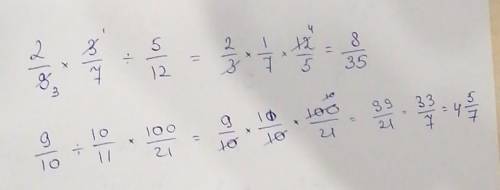 2/9 3 × 3 1/7 ÷ 5/12 = 2/3 × 1/7 × 12 4/5 = 8/35
9/10 ÷ 10/11 × 100/21 = 9/10 × 11/10 × 100/21 = 99/21 = 33/7 = 4 5/7